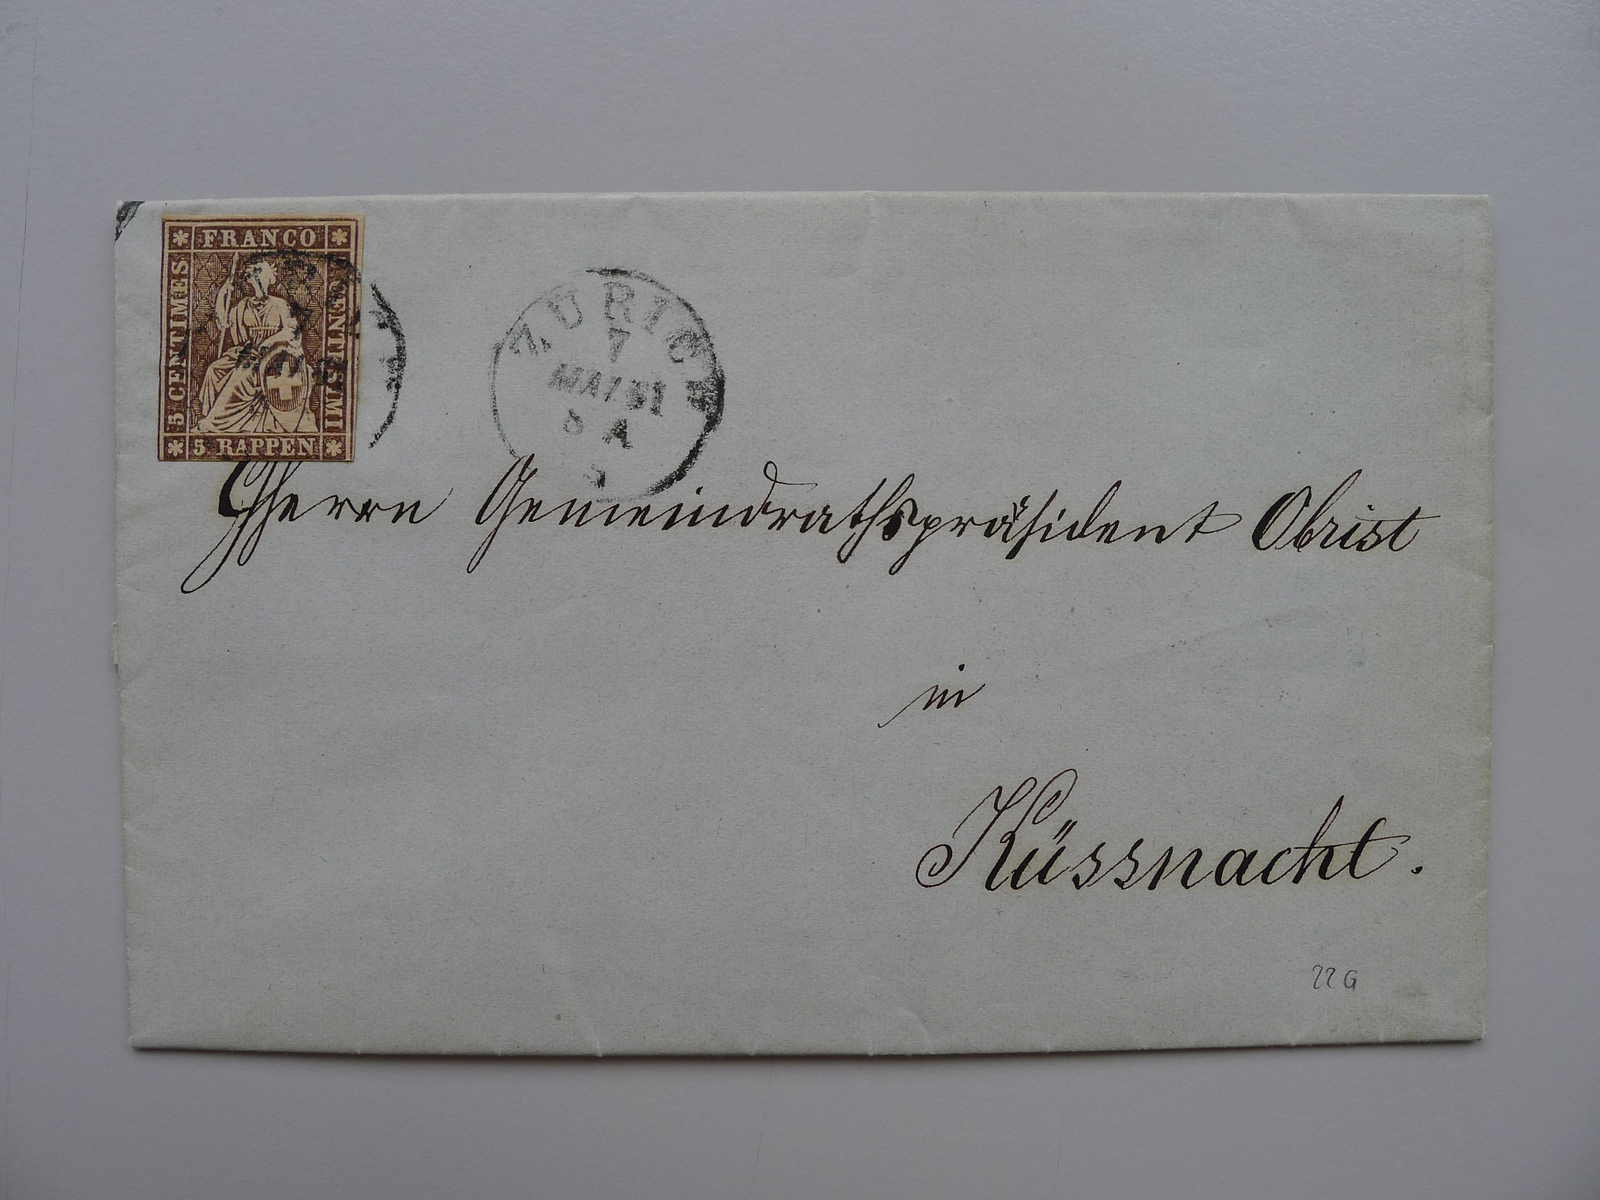 FRANCO
5 CENTIMES
CENTESIMI
5. RAPPEN
ZÜRICH
7
MAI 61
A
Herrn Gemeindrathspräsident Obrist
in
Küssnacht.
22G